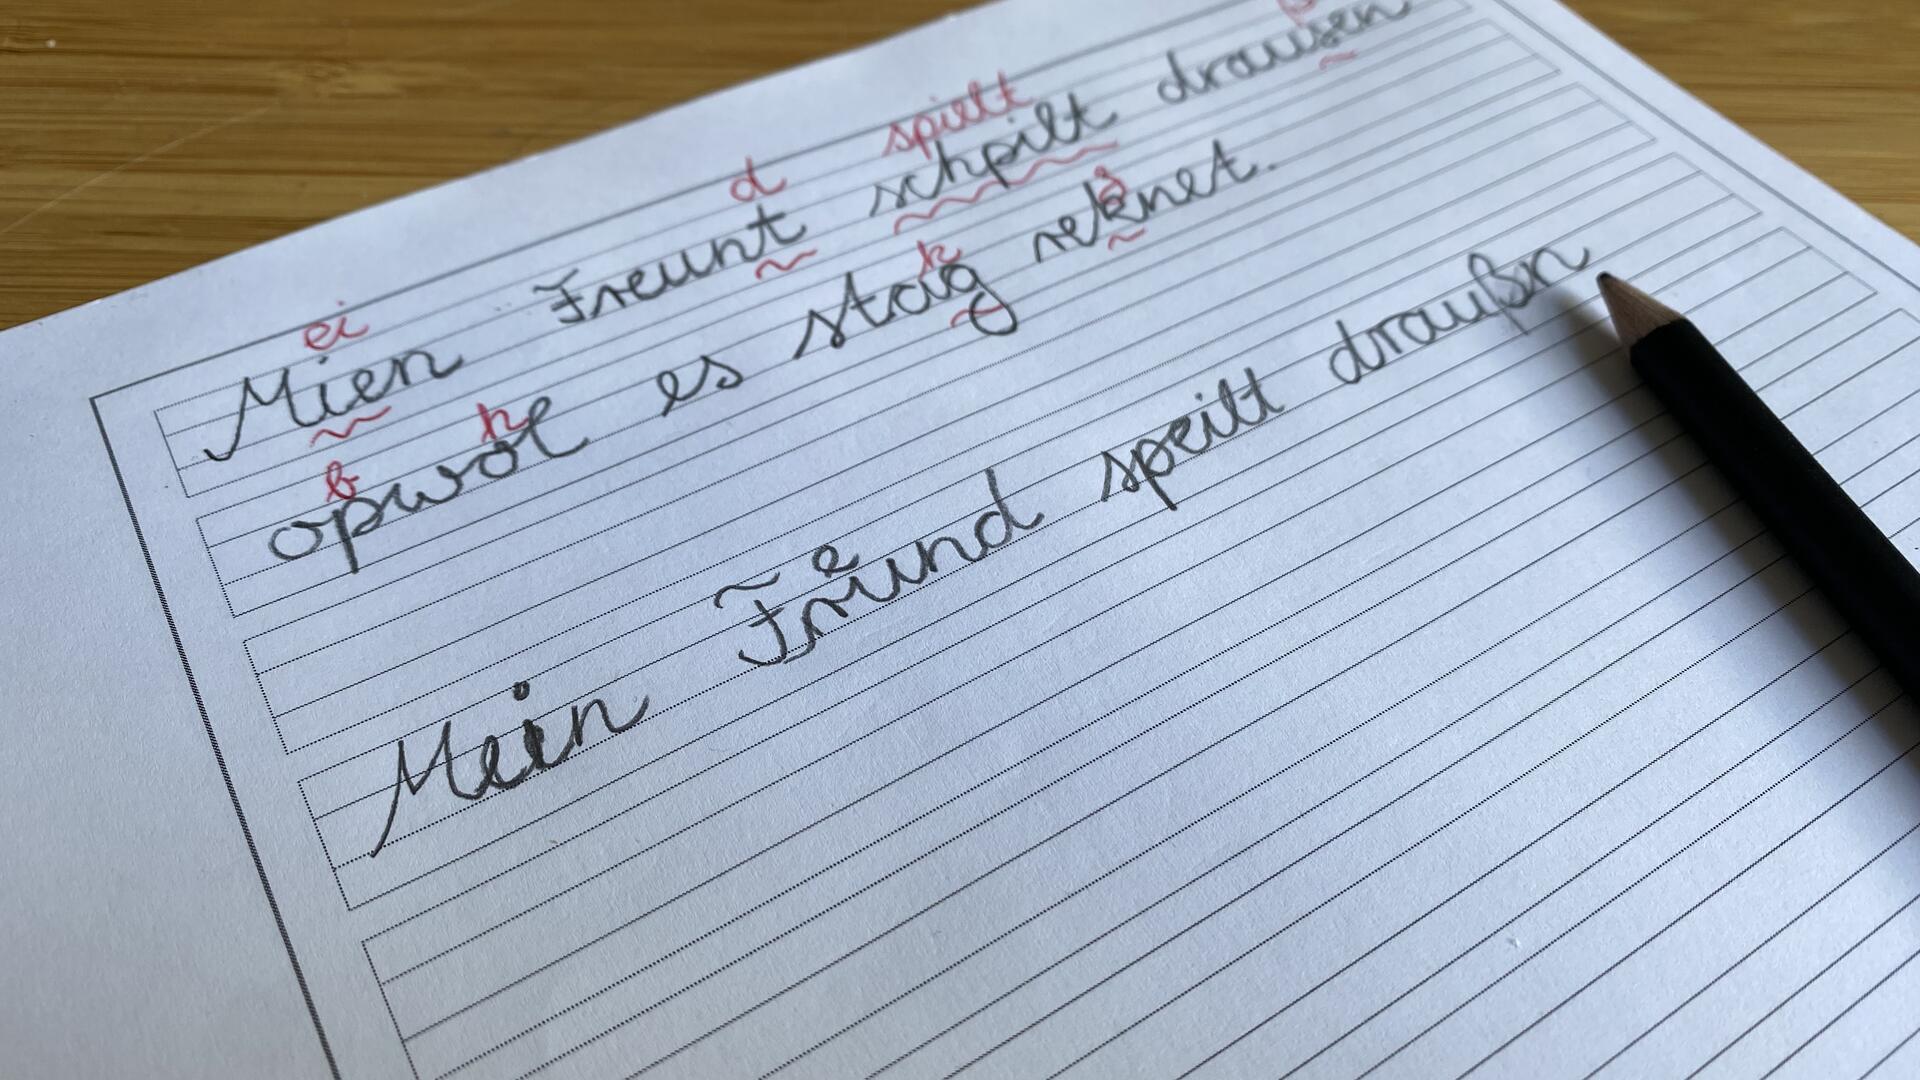 ei d spielt ß
Mien Freunt schpilt drausen
b h k g
opwol es stag reknet.
Mein Freund speilt draußn